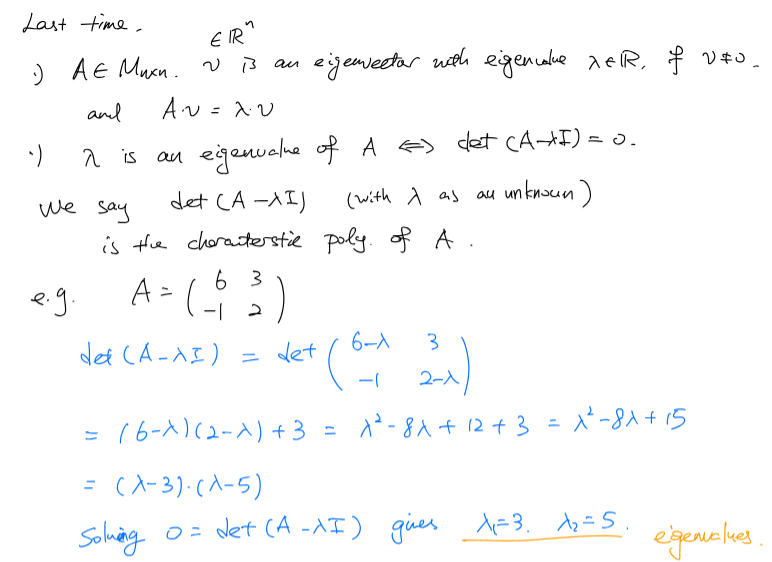 Last time.
·) A ∈ Mnxn. v ∈ ℝⁿ is an eigenvector with eigenvalue λ∈ℝ, if v≠0.
and A·v = λ·v
·) λ is an eigenvalue of A ⟺ det (A-λI) = 0.
We say det (A-λI) (with λ as an unknown)
is the charaterstic poly. of A.
e.g. A = ( 6 3
-1 2 )
det (A-λI) = det ( 6-λ 3
-1 2-λ )
= (6-λ)(2-λ)+3 = λ²-8λ+12+3 = λ²-8λ+15
= (λ-3)·(λ-5)
Solving 0 = det (A-λI) gives λ₁=3. λ₂=5. eigenvalues.